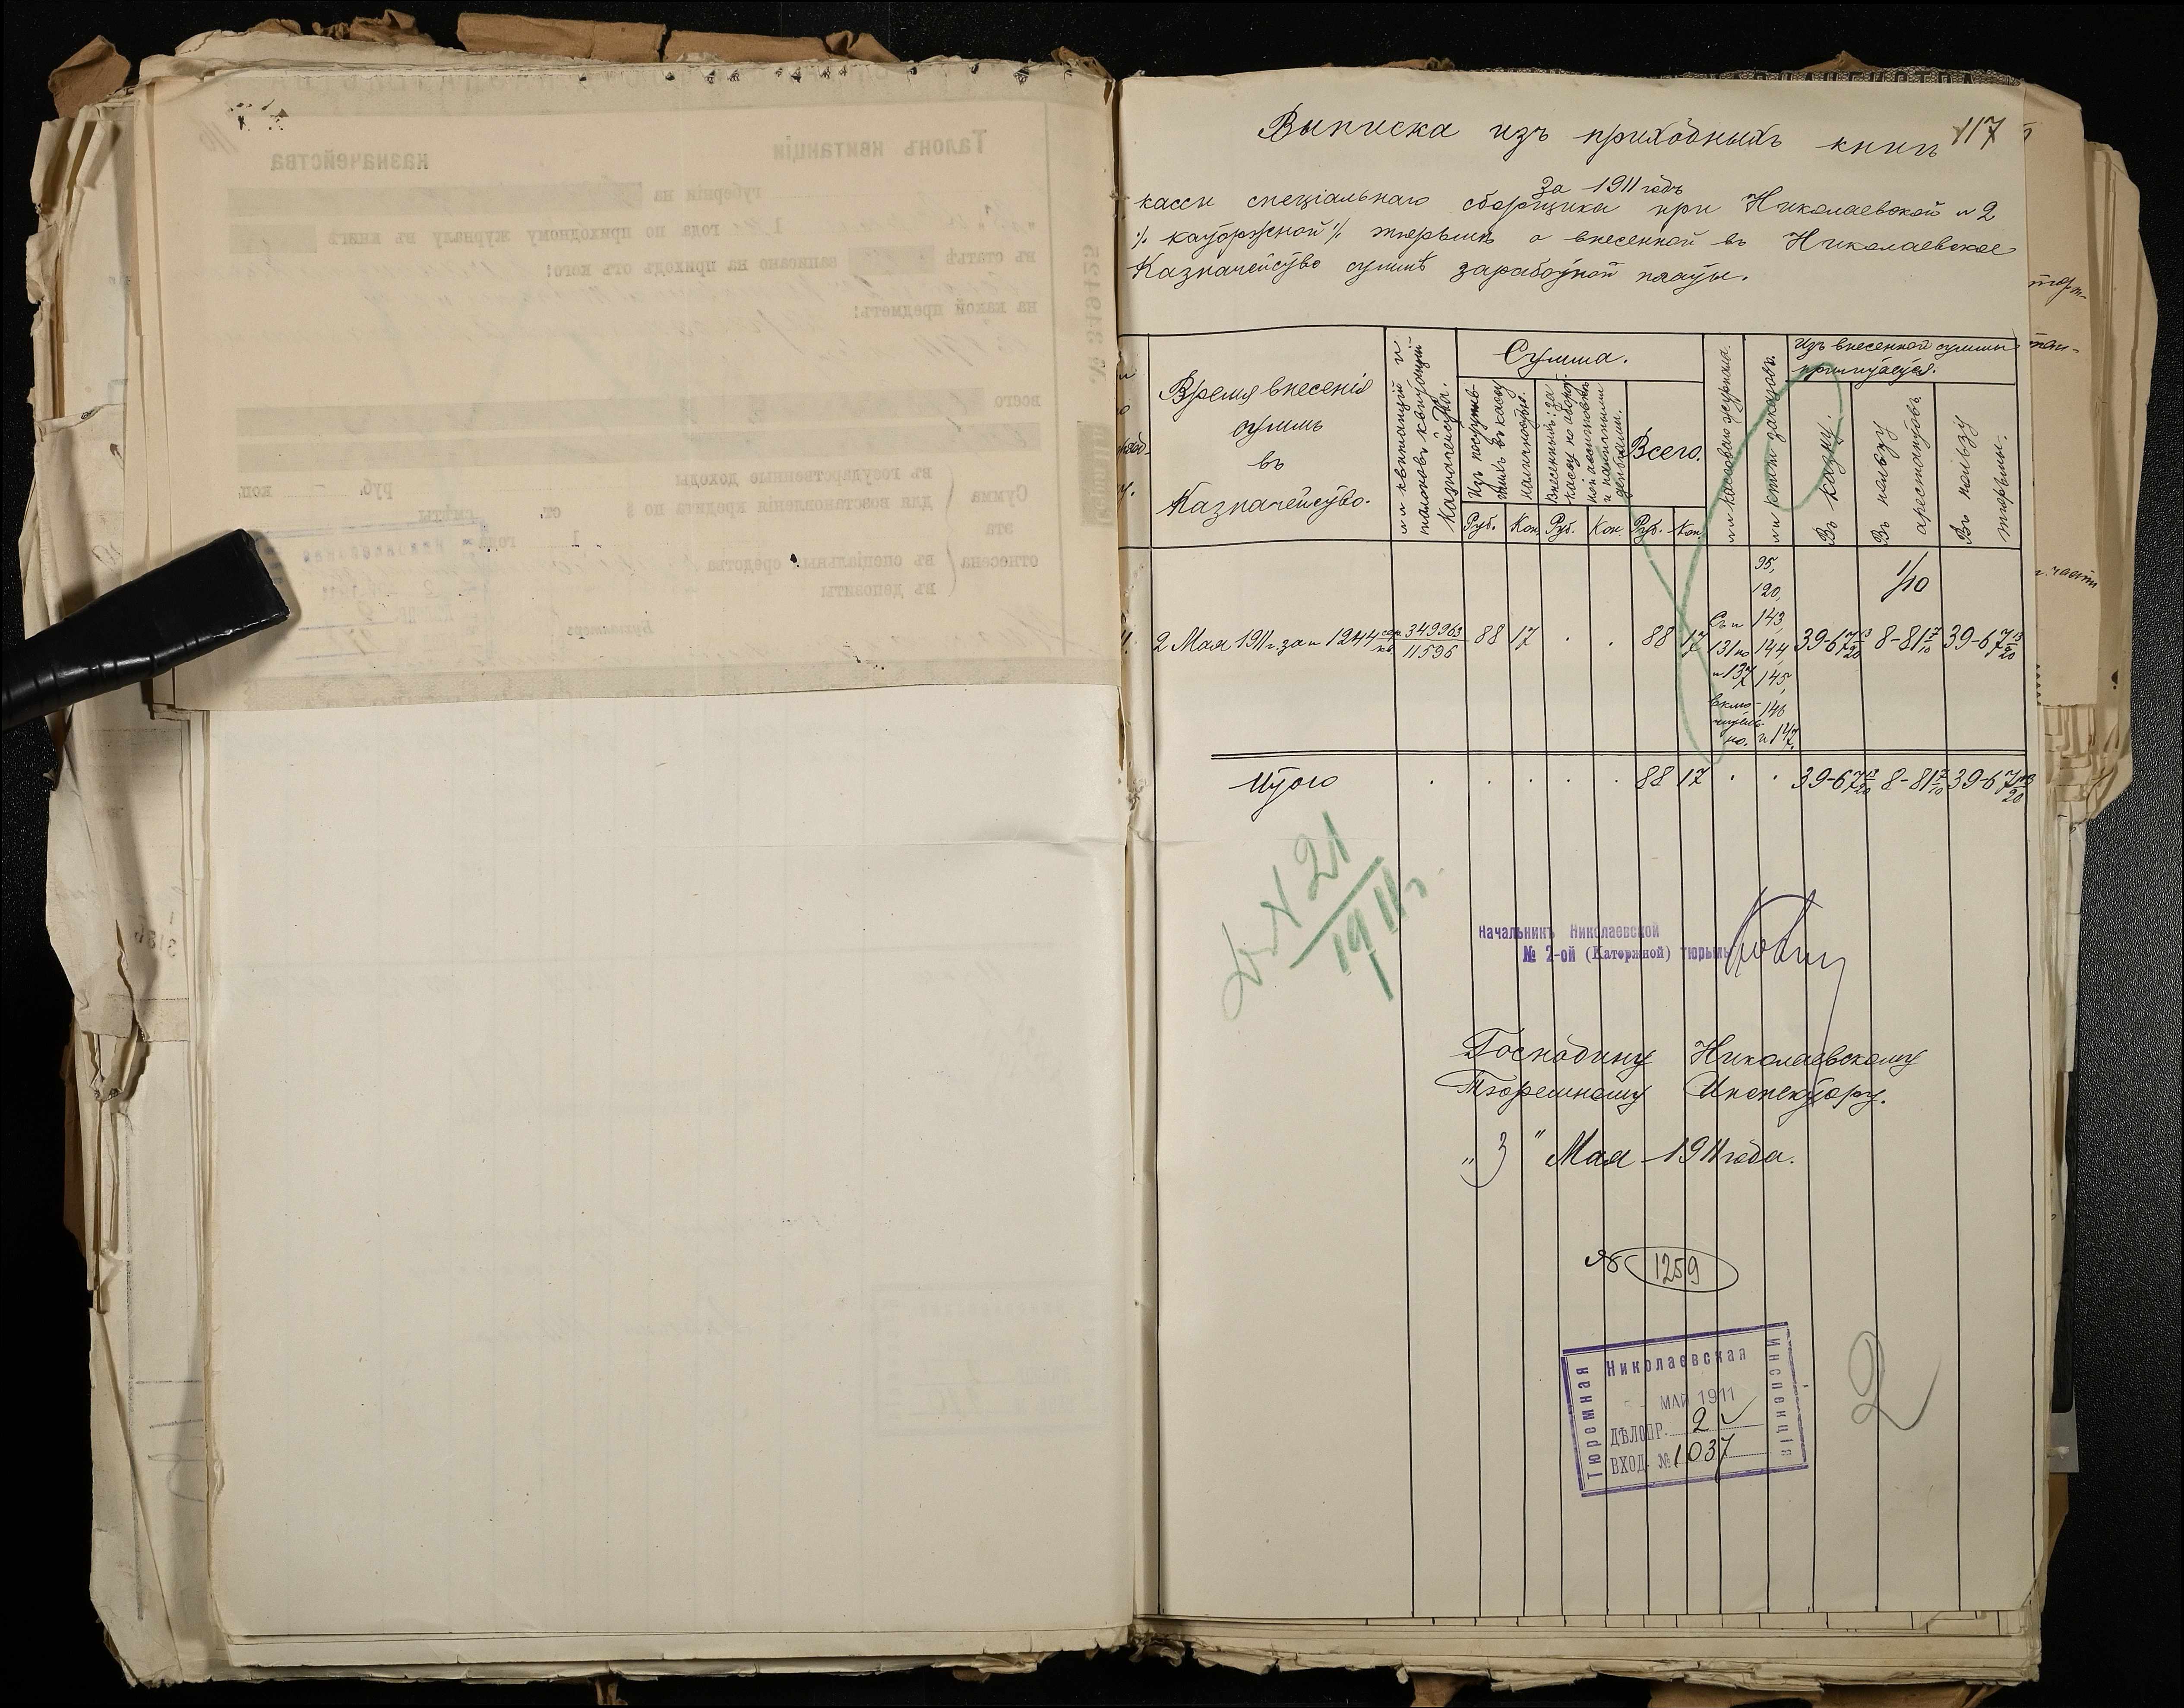 Выписка изъ приходныхъ книгъ
117
за 1911 годъ
кассы спеціальнаго сборщика при Николаевской № 2
·/. каторжной ·/. тюрьмѣ о внесенной въ Николаевское
Казначейство суммѣ заработной платы.
Время внесенія
суммъ
въ
Казначейство.
№№ квитанцій и
талоновъ квитанцій
Казначейства.
Сумма.
Изъ поступив-
шихъ въ кассу
наличностью.
Всего.
Руб. Коп. Руб. Коп. Руб. Коп.
№№ кассоваго журнала.
№№ заказовъ.
Изъ внесенной суммы
причитается.
Въ казну.
Въ пользу
арестантовъ.
Въ пользу
тюрьмы.
95,
120,
1/10
2 Мая 1911 г. за № 1244 сер. 349963 кв. 11596 88 17 . . 88 17 Съ № 131 по № 137 включительно. 143, 144, 145, 146 и 147. 39-67 13/20 8-81 7/10 39-67 13/20
Итого . . . . . 88 17 . . 39-67 13/20 8-81 7/10 39-67 13/20
21
1911 г.
Начальникъ Николаевской
№ 2-ой (Каторжной) тюрьмы
Господину Николаевскому
Тюремному Инспектору.
„3" Мая 1911 года.
№ 1259
Николаевская
Тюремная
Инспекція
МАЙ 1911
ДѢЛОПР. 2
ВХОД. № 1037
2
Талонъ квитанціи
казначейства
губерніи на
года по приходному журналу въ книгѣ
въ статьѣ записано на приходъ отъ кого:
на какой предметъ:
№ 349125
всего
Сумма
эта
отнесена
въ государственные доходы руб. коп.
для возстановленія кредита по § ст. смѣты
1 года
въ спеціальныя средства
въ депозиты
Бухгалтеръ